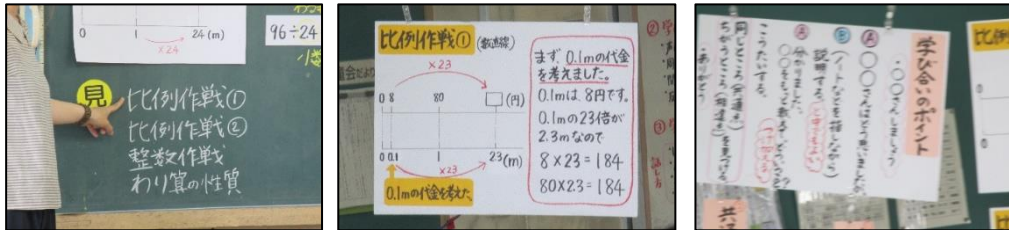 0 1 24(m)
×24
96÷24
見
比例作戦①
比例作戦②
整数作戦
わり算の性質
比例作戦①(数直線)
×23
0 8 80 □(円)
0 0.1 1 23(m)
×23
0.1mの代金を考えた。
まず、0.1mの代金
を考えました。
0.1mは、8円です。
0.1mの23倍が
2.3mなので
8×23=184
80×23=184
学び合いのポイント
・〇〇さんしましょう
Ⓐ
〇〇さんはどう思いましたか。
Ⓑ
(ノートなどを指しながら)
説明する。
Ⓐ
分かりました。
こうたいする。
同じところ(共通点)
ちがうところ(相違点)を見つける。
・ありがとう
比例
0
共
比